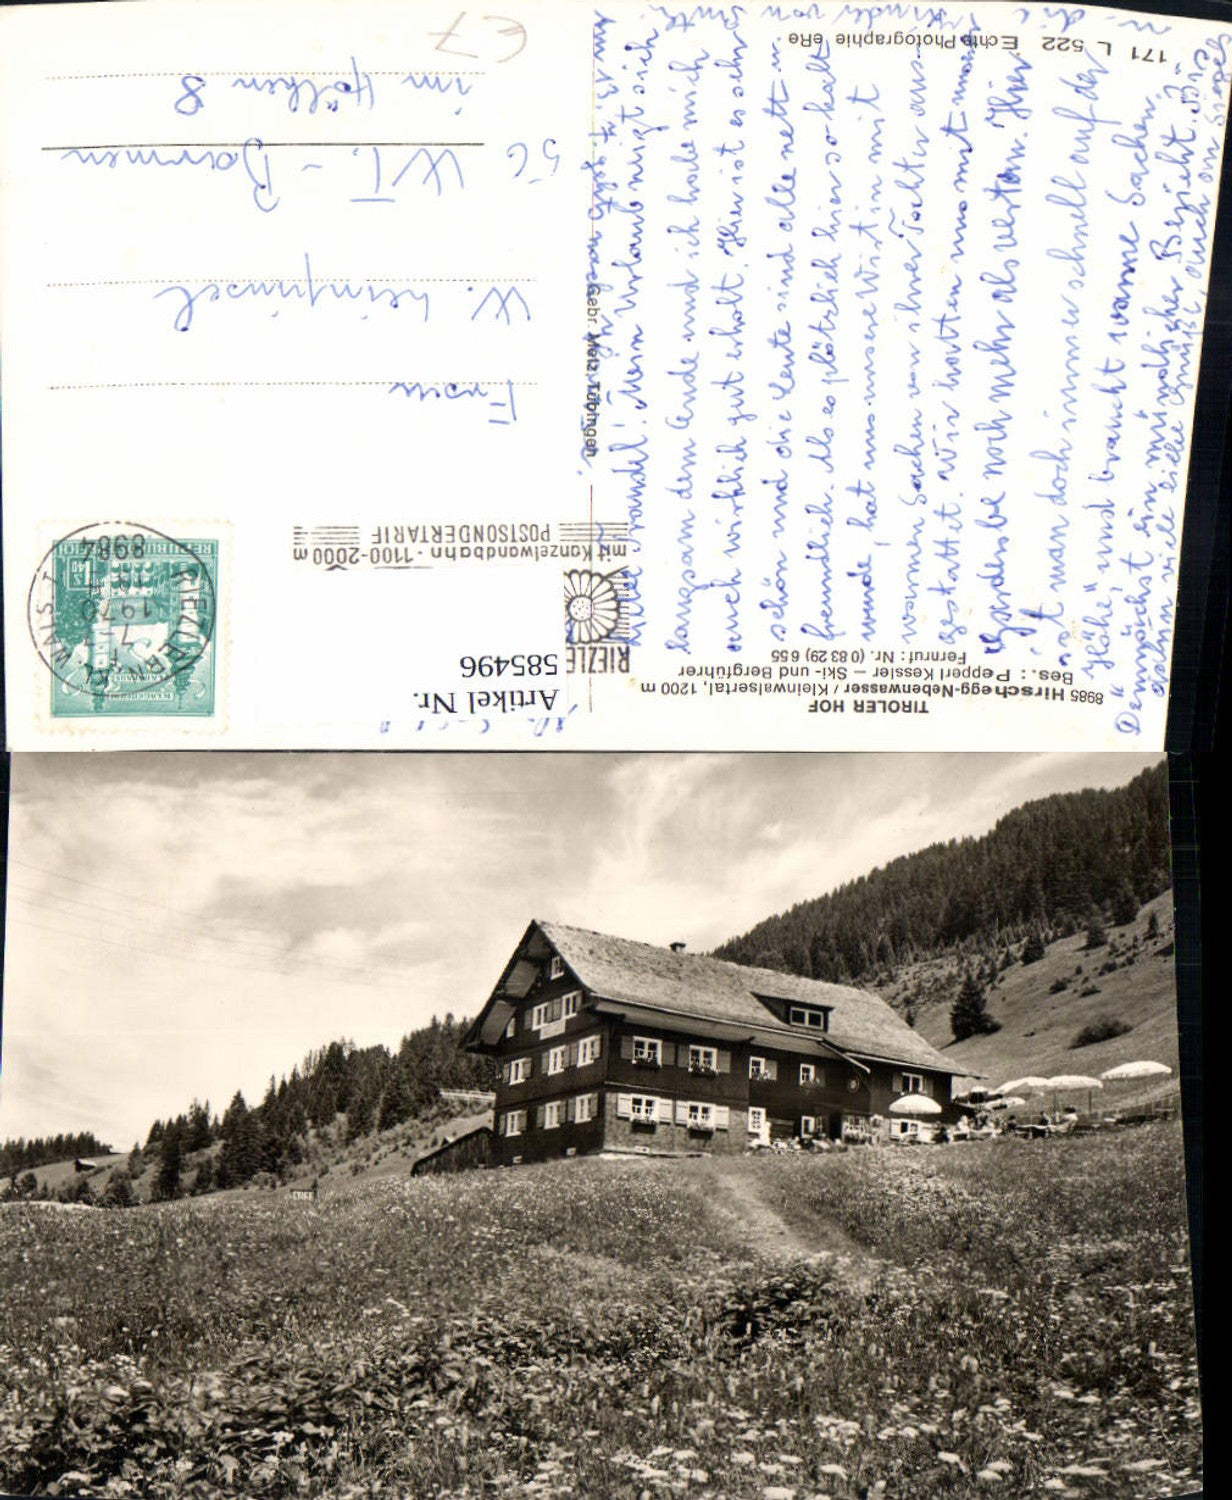 TIROLER HOF
8985 Hirschegg-Nebenwasser / Kleinwalsertal, 1200 m
Bes.: Pepperl Kessler – Ski- und Bergführer
Fernruf: Nr. (0 83 29) 6 55
Artikel Nr.
585496
RIEZLE
mit Kanzelwandbahn · 1100-2000 m
POSTSONDERTARIF
RIEZLERN
1970
8984
REPUBLIK
S 1.40
Gebr. Metz, Tübingen
Frau
W. Heinpinsel
56 WT. - Barmen
im Hölken 8
langsam dem Ende und ich habe mich
auch wirklich gut erholt. Hier ist es sehr
schön und die Leute sind alle nett u.
freundlich. Als es plötzlich hier so kalt
wurde, hat uns unsere Wirtin mit
warmen Sachen von ihrer Tochter aus-
gestattet. Wir hatten uns mit
Garderobe noch mehr als vertan. Hier
ist man doch immer schnell auf der
"Höhe" und braucht warme Sachen.
Demnächst ein mündlicher Bericht. Bis
dahin viele Grüße, auch an
171 L 522 Echte Photographie eRe
€7